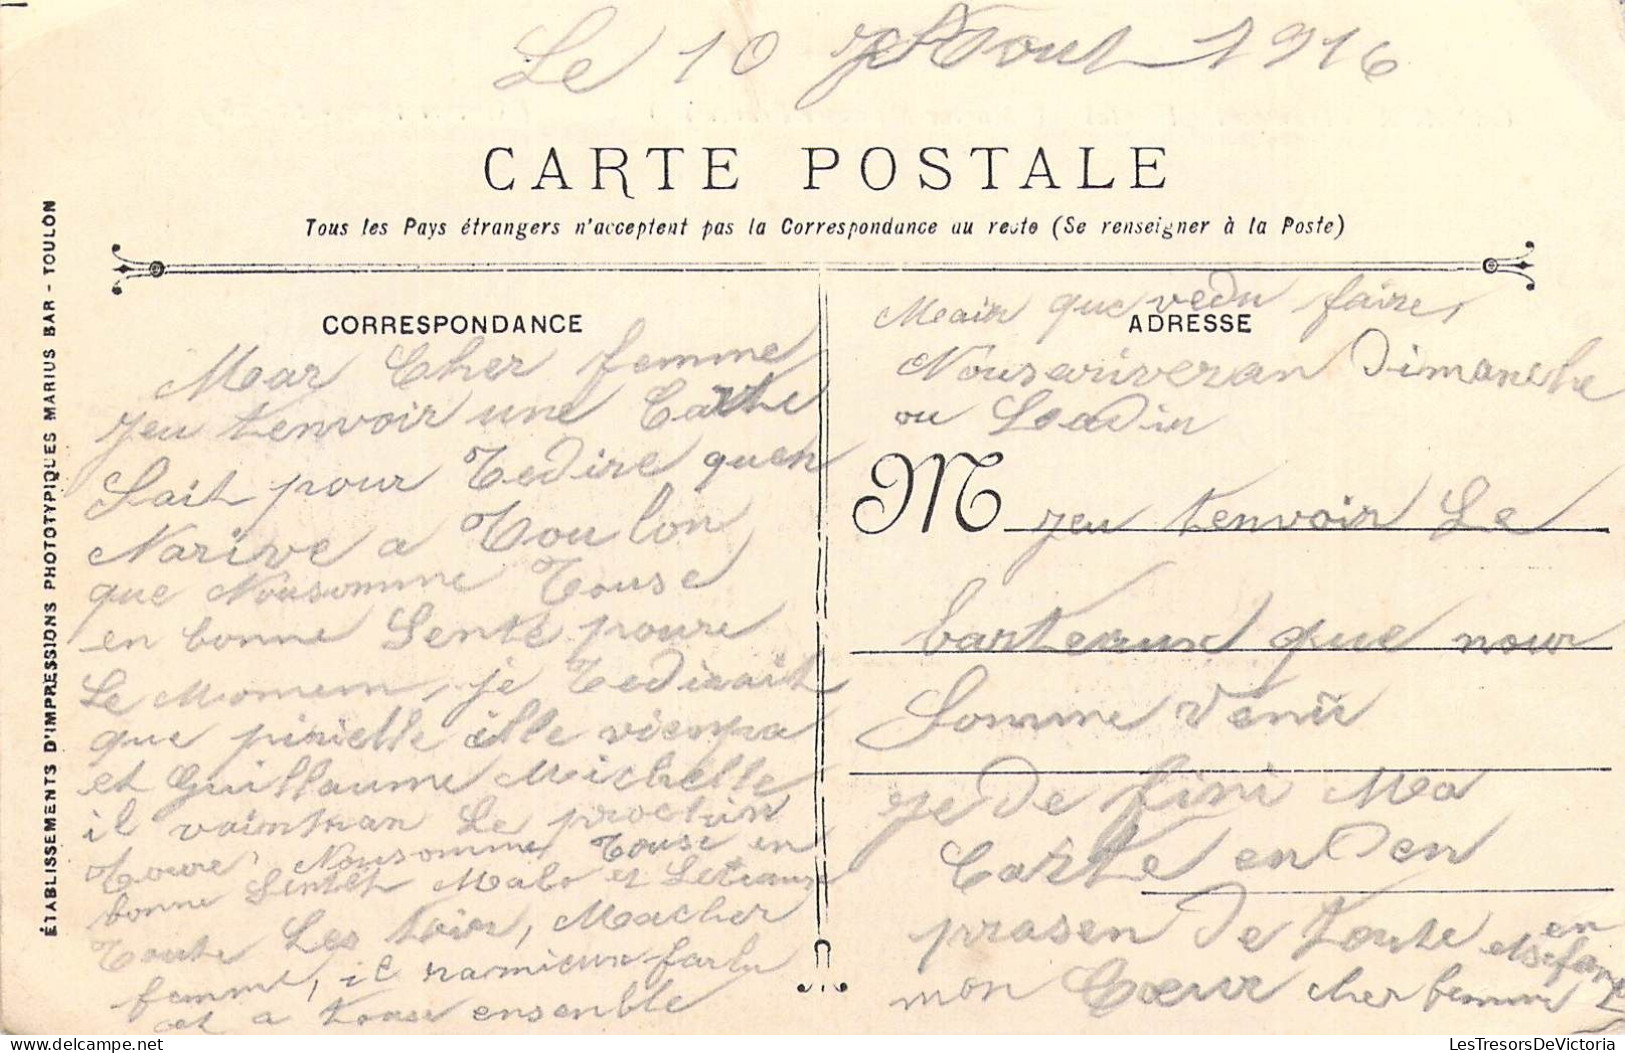 Le 10 Aout 1916
CARTE POSTALE
Tous les Pays étrangers n'acceptent pas la Correspondance au recto (Se renseigner à la Poste)
ÉTABLISSEMENTS D'IMPRESSIONS PHOTOTYPIQUES MARIUS BAR - TOULON
CORRESPONDANCE
Mar Cher femme
jeu tenvoir une Carte
Sait pour Tedire quen
Narive a Toulon
que Nousomme Touse
en bonne Sente poure
Le Momem, je Tedirait
que pirielle ille viempa
et Guillaume Michelle
il vaintran Le proctin
Toure, Nousomme Touse en
bonne Sentet Malo et
Toute Les Macher
femme, il
et a touse ensemble
ADRESSE
Mair que vedu faire,
Nousariveran Dimanche
ou Leadin
M jeu tenvoir Le
Carteaux que nour
Somme venu
je De fini Ma
Carte en Den
prasen De toute en
mon Cœur cher femme
LesTresorsDeVictoria.com